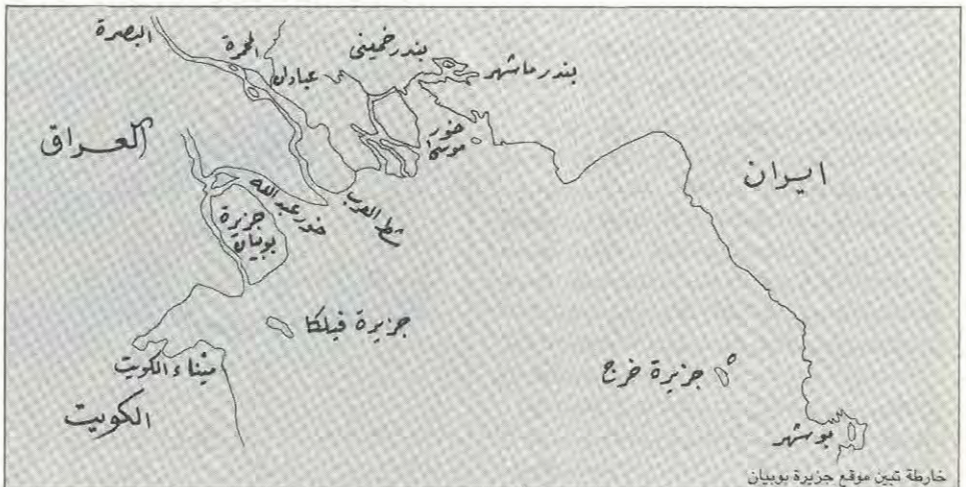 البصرة
المحمرة
عبادان
بندر خميني
بندر ماشهر
خور
موسى
العراق
ايران
خور عبد الله
شط العرب
جزيرة
بوبيان
جزيرة فيلكا
ميناء الكويت
الكويت
جزيرة خرج
بوشهر
خارطة تبين موقع جزيرة بوبيان